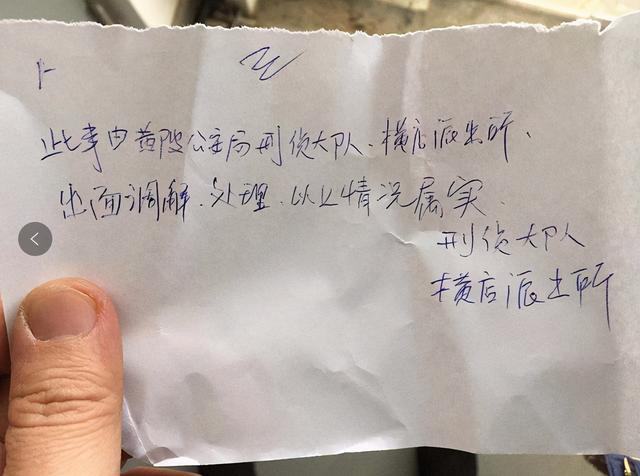 此事由黄陂公安局刑侦大队、横店派出所、
出面调解、处理、以上情况属实
刑侦大队
横店派出所